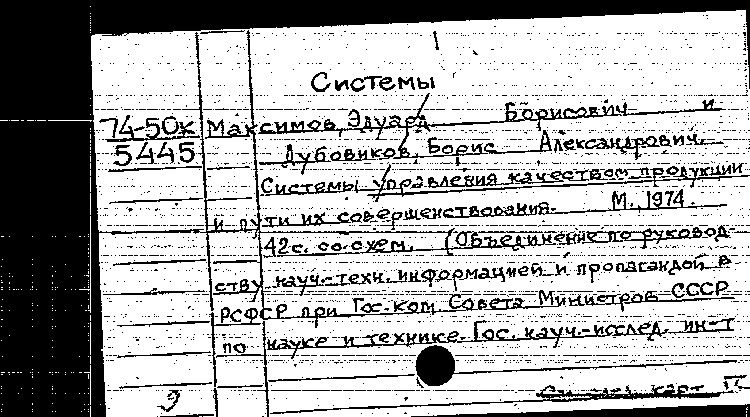 Системы
74-50к Максимов, Эдуард Борисович и
5445 Дубовиков, Борис Александрович.
Системы управления качеством продукции
и пути их совершенствования. М., 1974.
42с. со схем. (Объединение по руковод-
ству науч.-техн. информацией и пропагандой в
РСФСР при Гос. ком. Совета Министров СССР
по науке и технике. Гос. науч.-исслед. ин-т
9 См. след. карт